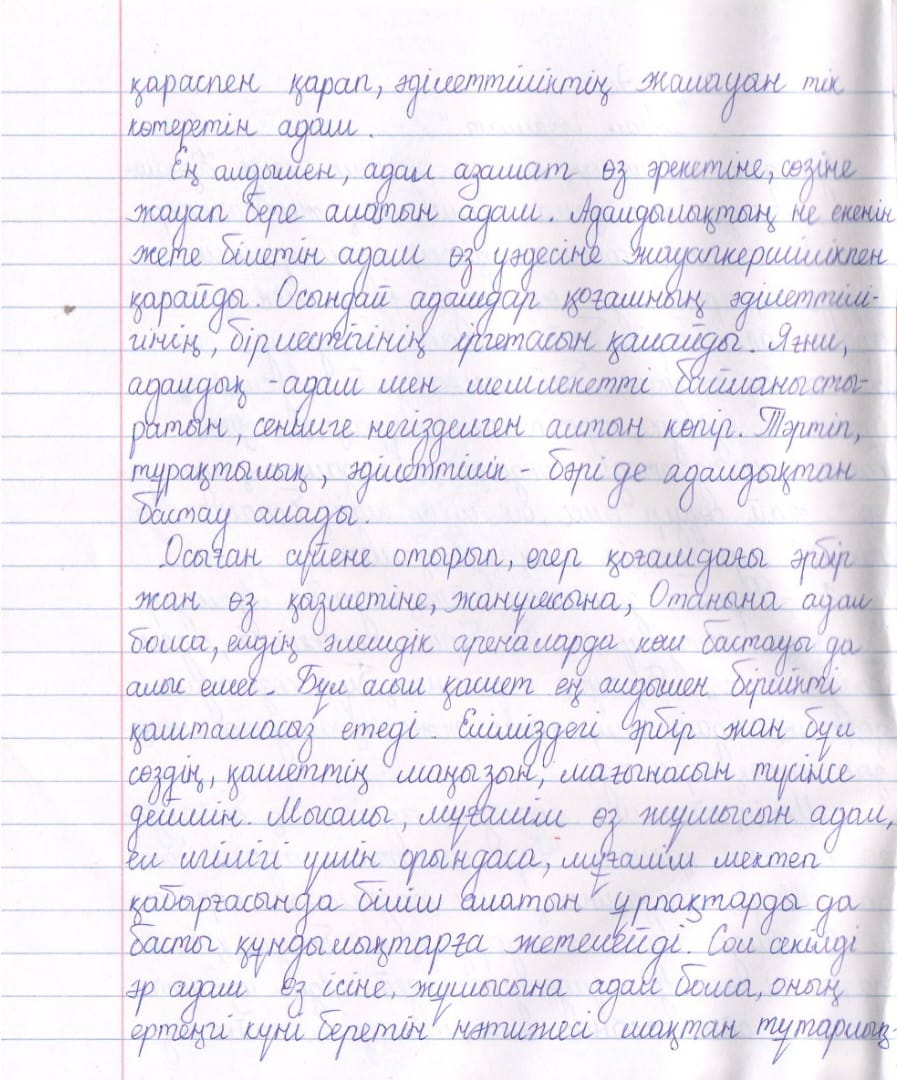 қараспен қарап, әділеттіліктің жалауын тік
көтеретін адам.
Ең алдымен, адал азамат өз әрекетіне, сөзіне
жауап бере алатын адам. Адалдылықтың не екенін
жете білетін адам өз уәдесіне жауапкершілікпен
қарайды. Осындай адамдар қоғамның әділеттілі-
гінің, бірлестігінің іргетасын қалайды. Яғни,
адалдық - адам мен мемлекетті байланысты-
ратын, сенімге негізделген алтын көпір. Тәртіп,
тұрақтылық, әділеттілік - бәрі де адалдықтан
бастау алады.
Осыған сүйене отырып, егер қоғамдағы әрбір
жан өз қызметіне, жанұясына, Отанына адал
болса, елдің әлемдік ареналарда көш бастауы да
алыс емес. Бұл асыл қасиет ең алдымен бірлікті
қамтамасыз етеді. Еліміздегі әрбір жан бұл
сөздің, қасиеттің маңызын, мағынасын түсінсе
деймін. Мысалы, мұғалім өз жұмысын адал,
ел игілігі үшін орындаса, мұғалім мектеп
қабырғасында білім алатын ұрпақтарды да
басты құндылықтарға жетелейді. Сол секілді
әр адам өз ісіне, жұмысына адал болса, оның
ертеңгі күні беретін нәтижесі мақтан тұтарлық-